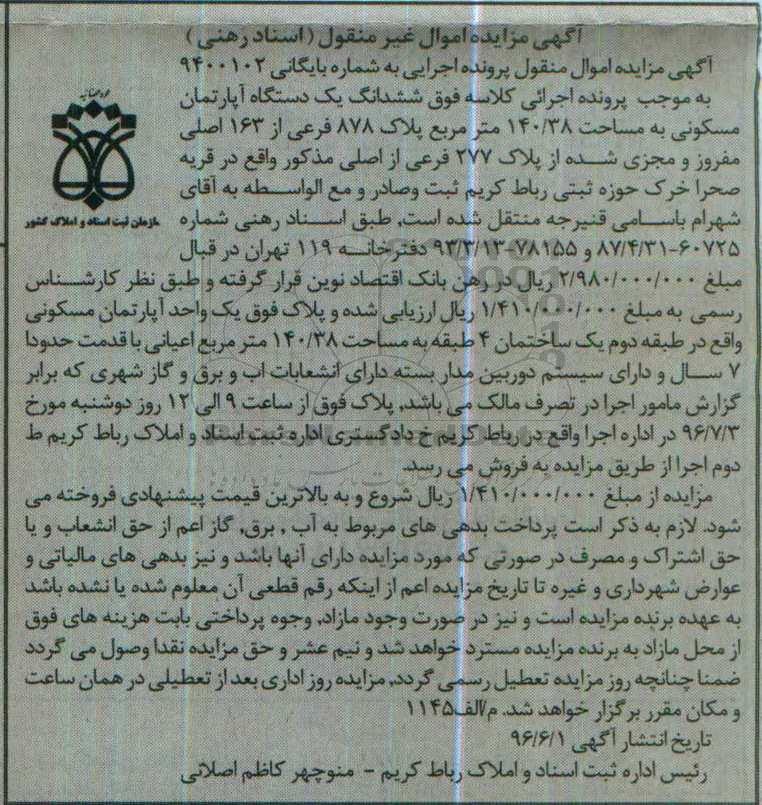 آگهی مزایده اموال غیر منقول (اسناد رهنی)
آگهی مزایده اموال منقول پرونده اجرایی به شماره بایگانی ۹۴۰۰۱۰۲
به موجب پرونده اجرائی کلاسه فوق ششدانگ یک دستگاه آپارتمان
مسکونی به مساحت ۱۴۰/۳۸ متر مربع پلاک ۸۷۸ فرعی از ۱۶۳ اصلی
مفروز و مجزی شده از پلاک ۲۷۷ فرعی از اصلی مذکور واقع در قریه
صحرا خرک حوزه ثبتی رباط کریم ثبت وصادر و مع الواسطه به آقای
شهرام باسامی قنیرجه منتقل شده است, طبق اسناد رهنی شماره
۶۰۷۲۵-۸۷/۴/۳۱ و ۷۸۱۵۵-۹۳/۳/۱۳ دفترخانه ۱۱۹ تهران در قبال
مبلغ ۲/۹۸۰/۰۰۰/۰۰۰ ریال در رهن بانک اقتصاد نوین قرار گرفته و طبق نظر کارشناس
رسمی به مبلغ ۱/۴۱۰/۰۰۰/۰۰۰ ریال ارزیابی شده و پلاک فوق یک واحد آپارتمان مسکونی
واقع در طبقه دوم یک ساختمان ۴ طبقه به مساحت ۱۴۰/۳۸ متر مربع اعیانی با قدمت حدودا
۷ سال و دارای سیستم دوربین مدار بسته دارای انشعابات اب و برق و گاز شهری که برابر
گزارش مامور اجرا در تصرف مالک می باشد, پلاک فوق از ساعت ۹ الی ۱۲ روز دوشنبه مورخ
۹۶/۷/۳ در اداره اجرا واقع در رباط کریم خ دادگستری اداره ثبت اسناد و املاک رباط کریم ط
دوم اجرا از طریق مزایده به فروش می رسد.
مزایده از مبلغ ۱/۴۱۰/۰۰۰/۰۰۰ ریال شروع و به بالاترین قیمت پیشنهادی فروخته می
شود. لازم به ذکر است پرداخت بدهی های مربوط به آب , برق, گاز اعم از حق انشعاب و یا
حق اشتراک و مصرف در صورتی که مورد مزایده دارای آنها باشد و نیز بدهی های مالیاتی و
عوارض شهرداری و غیره تا تاریخ مزایده اعم از اینکه رقم قطعی آن معلوم شده یا نشده باشد
به عهده برنده مزایده است و نیز در صورت وجود مازاد, وجوه پرداختی بابت هزینه های فوق
از محل مازاد به برنده مزایده مسترد خواهد شد و نیم عشر و حق مزایده نقدا وصول می گردد
ضمنا چنانچه روز مزایده تعطیل رسمی گردد, مزایده روز اداری بعد از تعطیلی در همان ساعت
و مکان مقرر برگزار خواهد شد. م/الف۱۱۴۵
تاریخ انتشار آگهی ۹۶/۶/۱
رئیس اداره ثبت اسناد و املاک رباط کریم - منوچهر کاظم اصلانی
قوه قضائیه
سازمان ثبت اسناد و املاک کشور